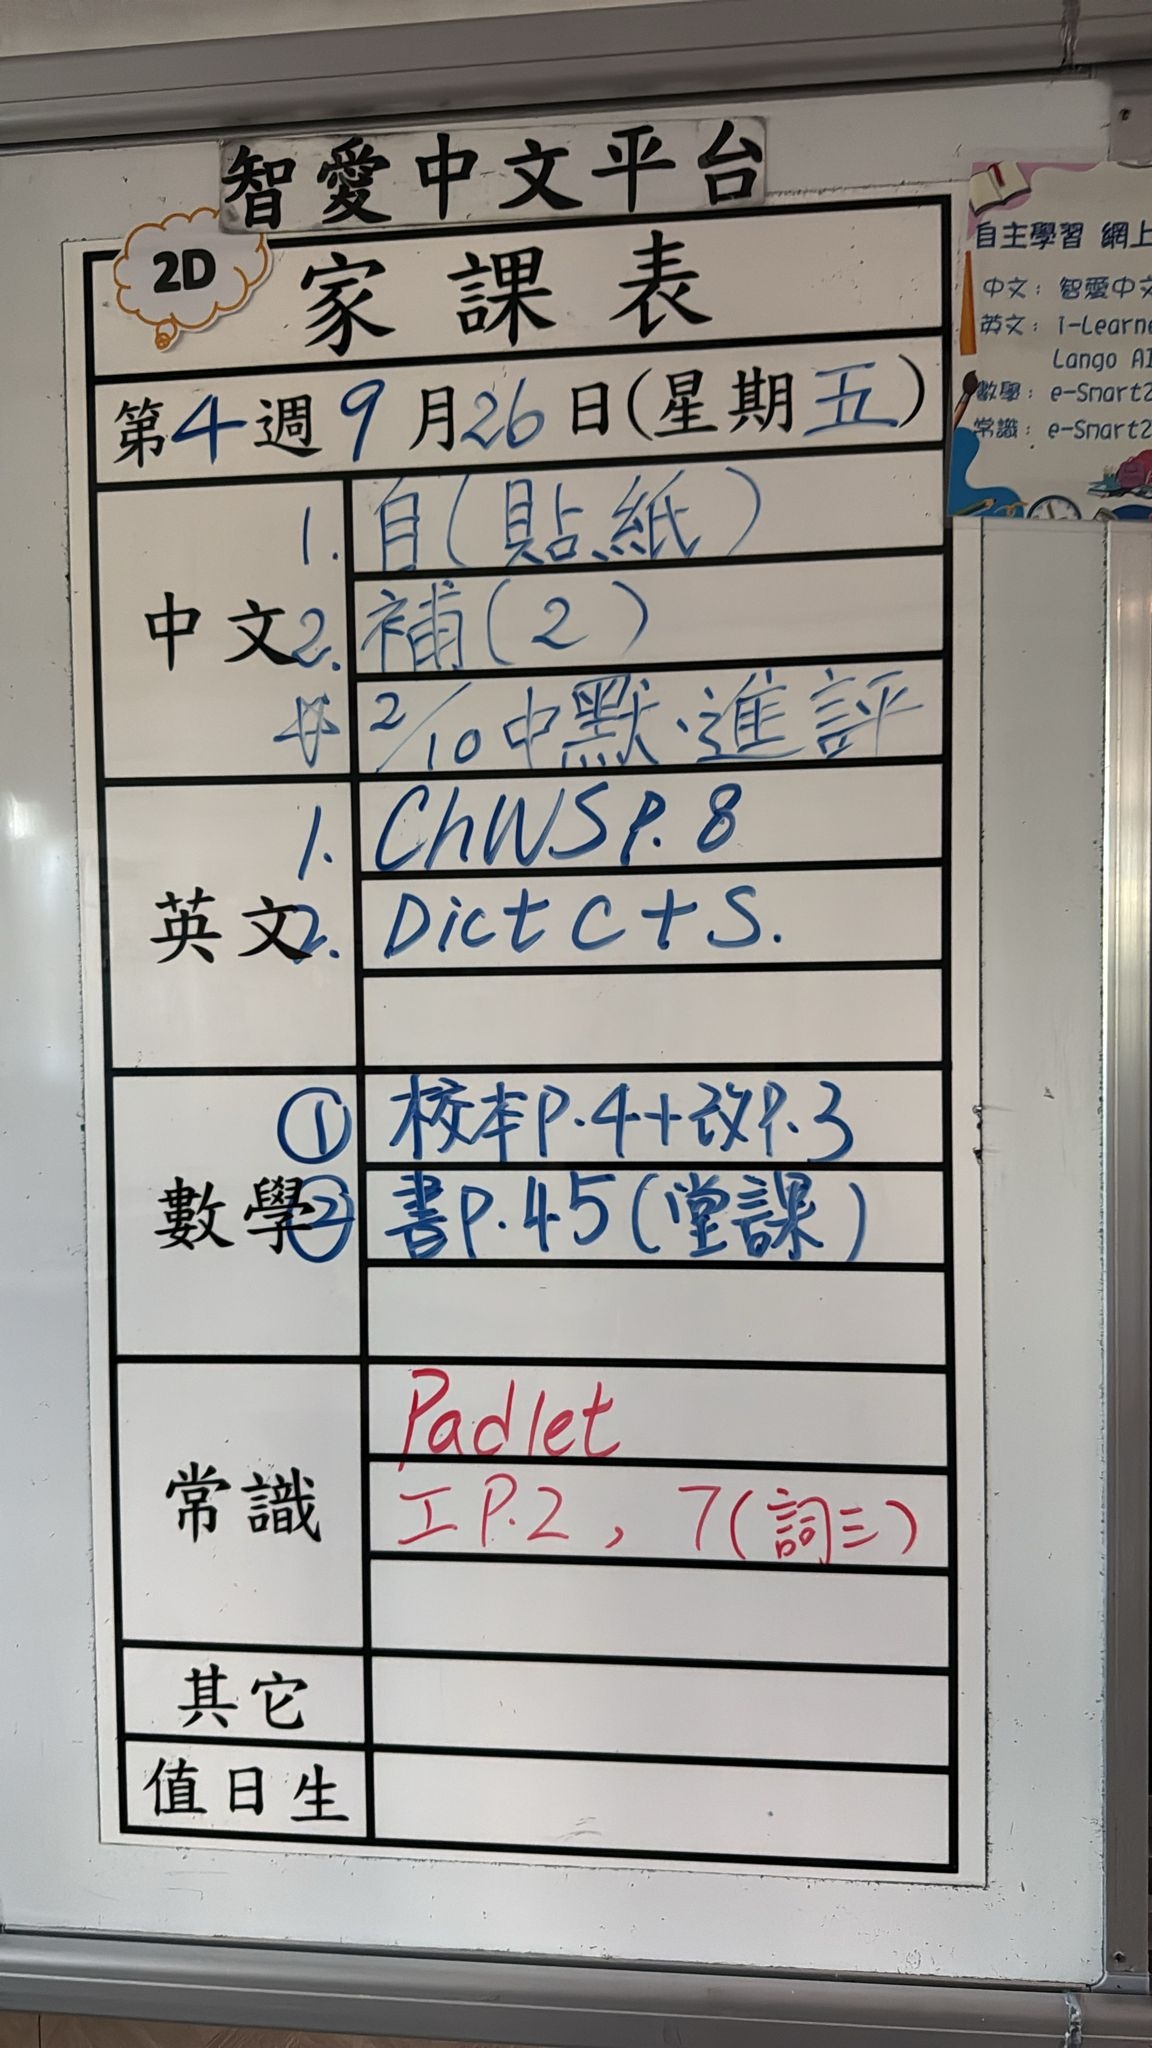 智愛中文平台
2D
家課表
第4週9月26日(星期五)
中文
1. 自(貼紙)
2. 補(2)
☆ 2/10中默、進評
英文
1. ChWS P. 8
2. Dict C + S.
數學
① 校本P.4+改P.3
② 書P.45(堂課)
常識
Padlet
工P.2, 7(詞三)
其它
值日生
自主學習 網上
中文: 智愛中文
英文: i-Learne
Lango AI
數學: e-Smart2
常識: e-Smart2